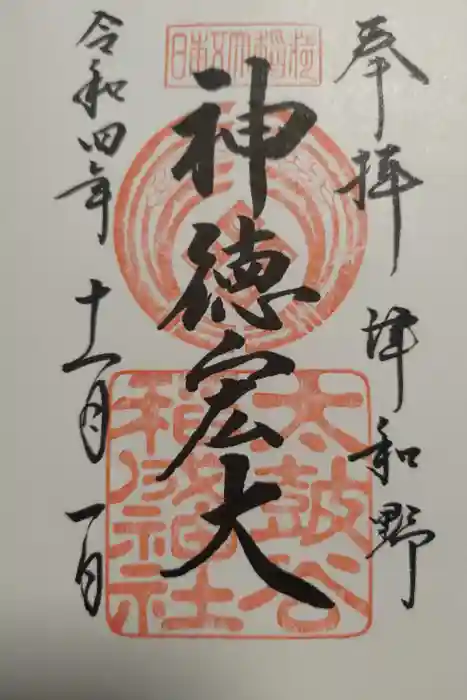 奉拝 津和野
日本五大稲荷
神徳宏大
太皷谷
稲成神社
令和四年十一月一日